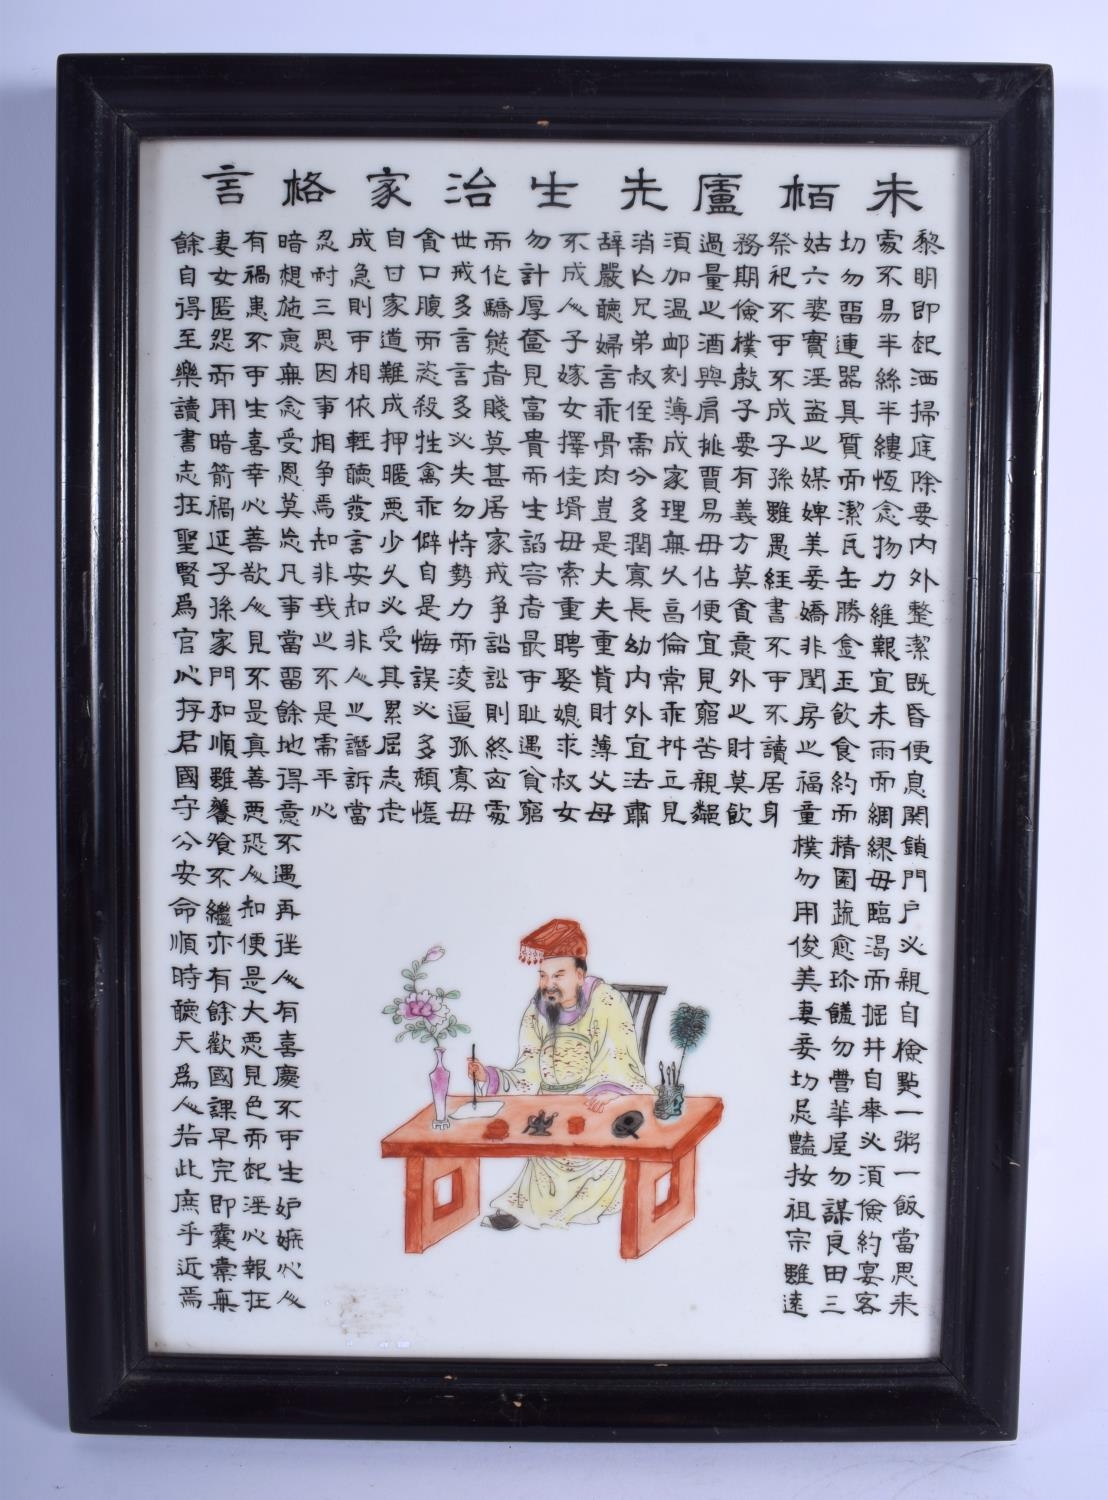 朱栢廬先生治家格言
黎明即起洒掃庭除要內外整潔既昏便息関鎖門户必親自檢點一粥一飯當思來
處不易半絲半縷恆念物力維艱宜未雨而綢繆毋臨渴而掘井自奉必須儉約宴客
切勿留連器具質而潔瓦缶勝金玉飲食約而精園蔬愈珍饈勿營華屋勿謀良田三
姑六婆實淫盜之媒婢美妾嬌非閨房之福童樸勿用俊美妻妾切忌豔妝祖宗雖遠
祭祀不可不成子孫雖愚經書不可不讀居身
務期儉樸教子要有義方莫貪意外之財莫飲
過量之酒與肩挑貿易毋佔便宜見窮苦親鄰
須加温卹刻薄成家理無久享倫常乖舛立見
消亾兄弟叔侄需分多潤寡長幼內外宜法肅
辭嚴聽婦言乖骨肉豈是丈夫重貲財薄父母
不成人子嫁女擇佳壻毋索重聘娶媳求叔女
勿計厚奩見富貴而生諂容者最可耻遇貧窮
而作驕態者賤莫甚居家戒爭訟訟則終凶處
世戒多言言多必失勿恃勢力而淩逼孤寡毋
貪口腹而恣殺牲禽乖僻自是悔誤必多頹惰
自甘家道難成狎暱惡少久必受其累屈志老
成急則可相依輕聽發言安知非人之譖訴當
忍耐三思因事相爭焉知非我之不是需平心
暗想施惠無念受恩莫忘凡事當留餘地得意不遇再往人有喜慶不可生妒嫉心人
有禍患不可生喜幸心善欲人見不是真善惡恐人知便是大惡見色而起淫心報在
妻女匿怨而用暗箭禍延子孫家門和順雖饔飧不繼亦有餘歡國課早完即囊橐無
餘自得至樂讀書志在聖賢為官心存君國守分安命順時聽天為人若此庶乎近焉